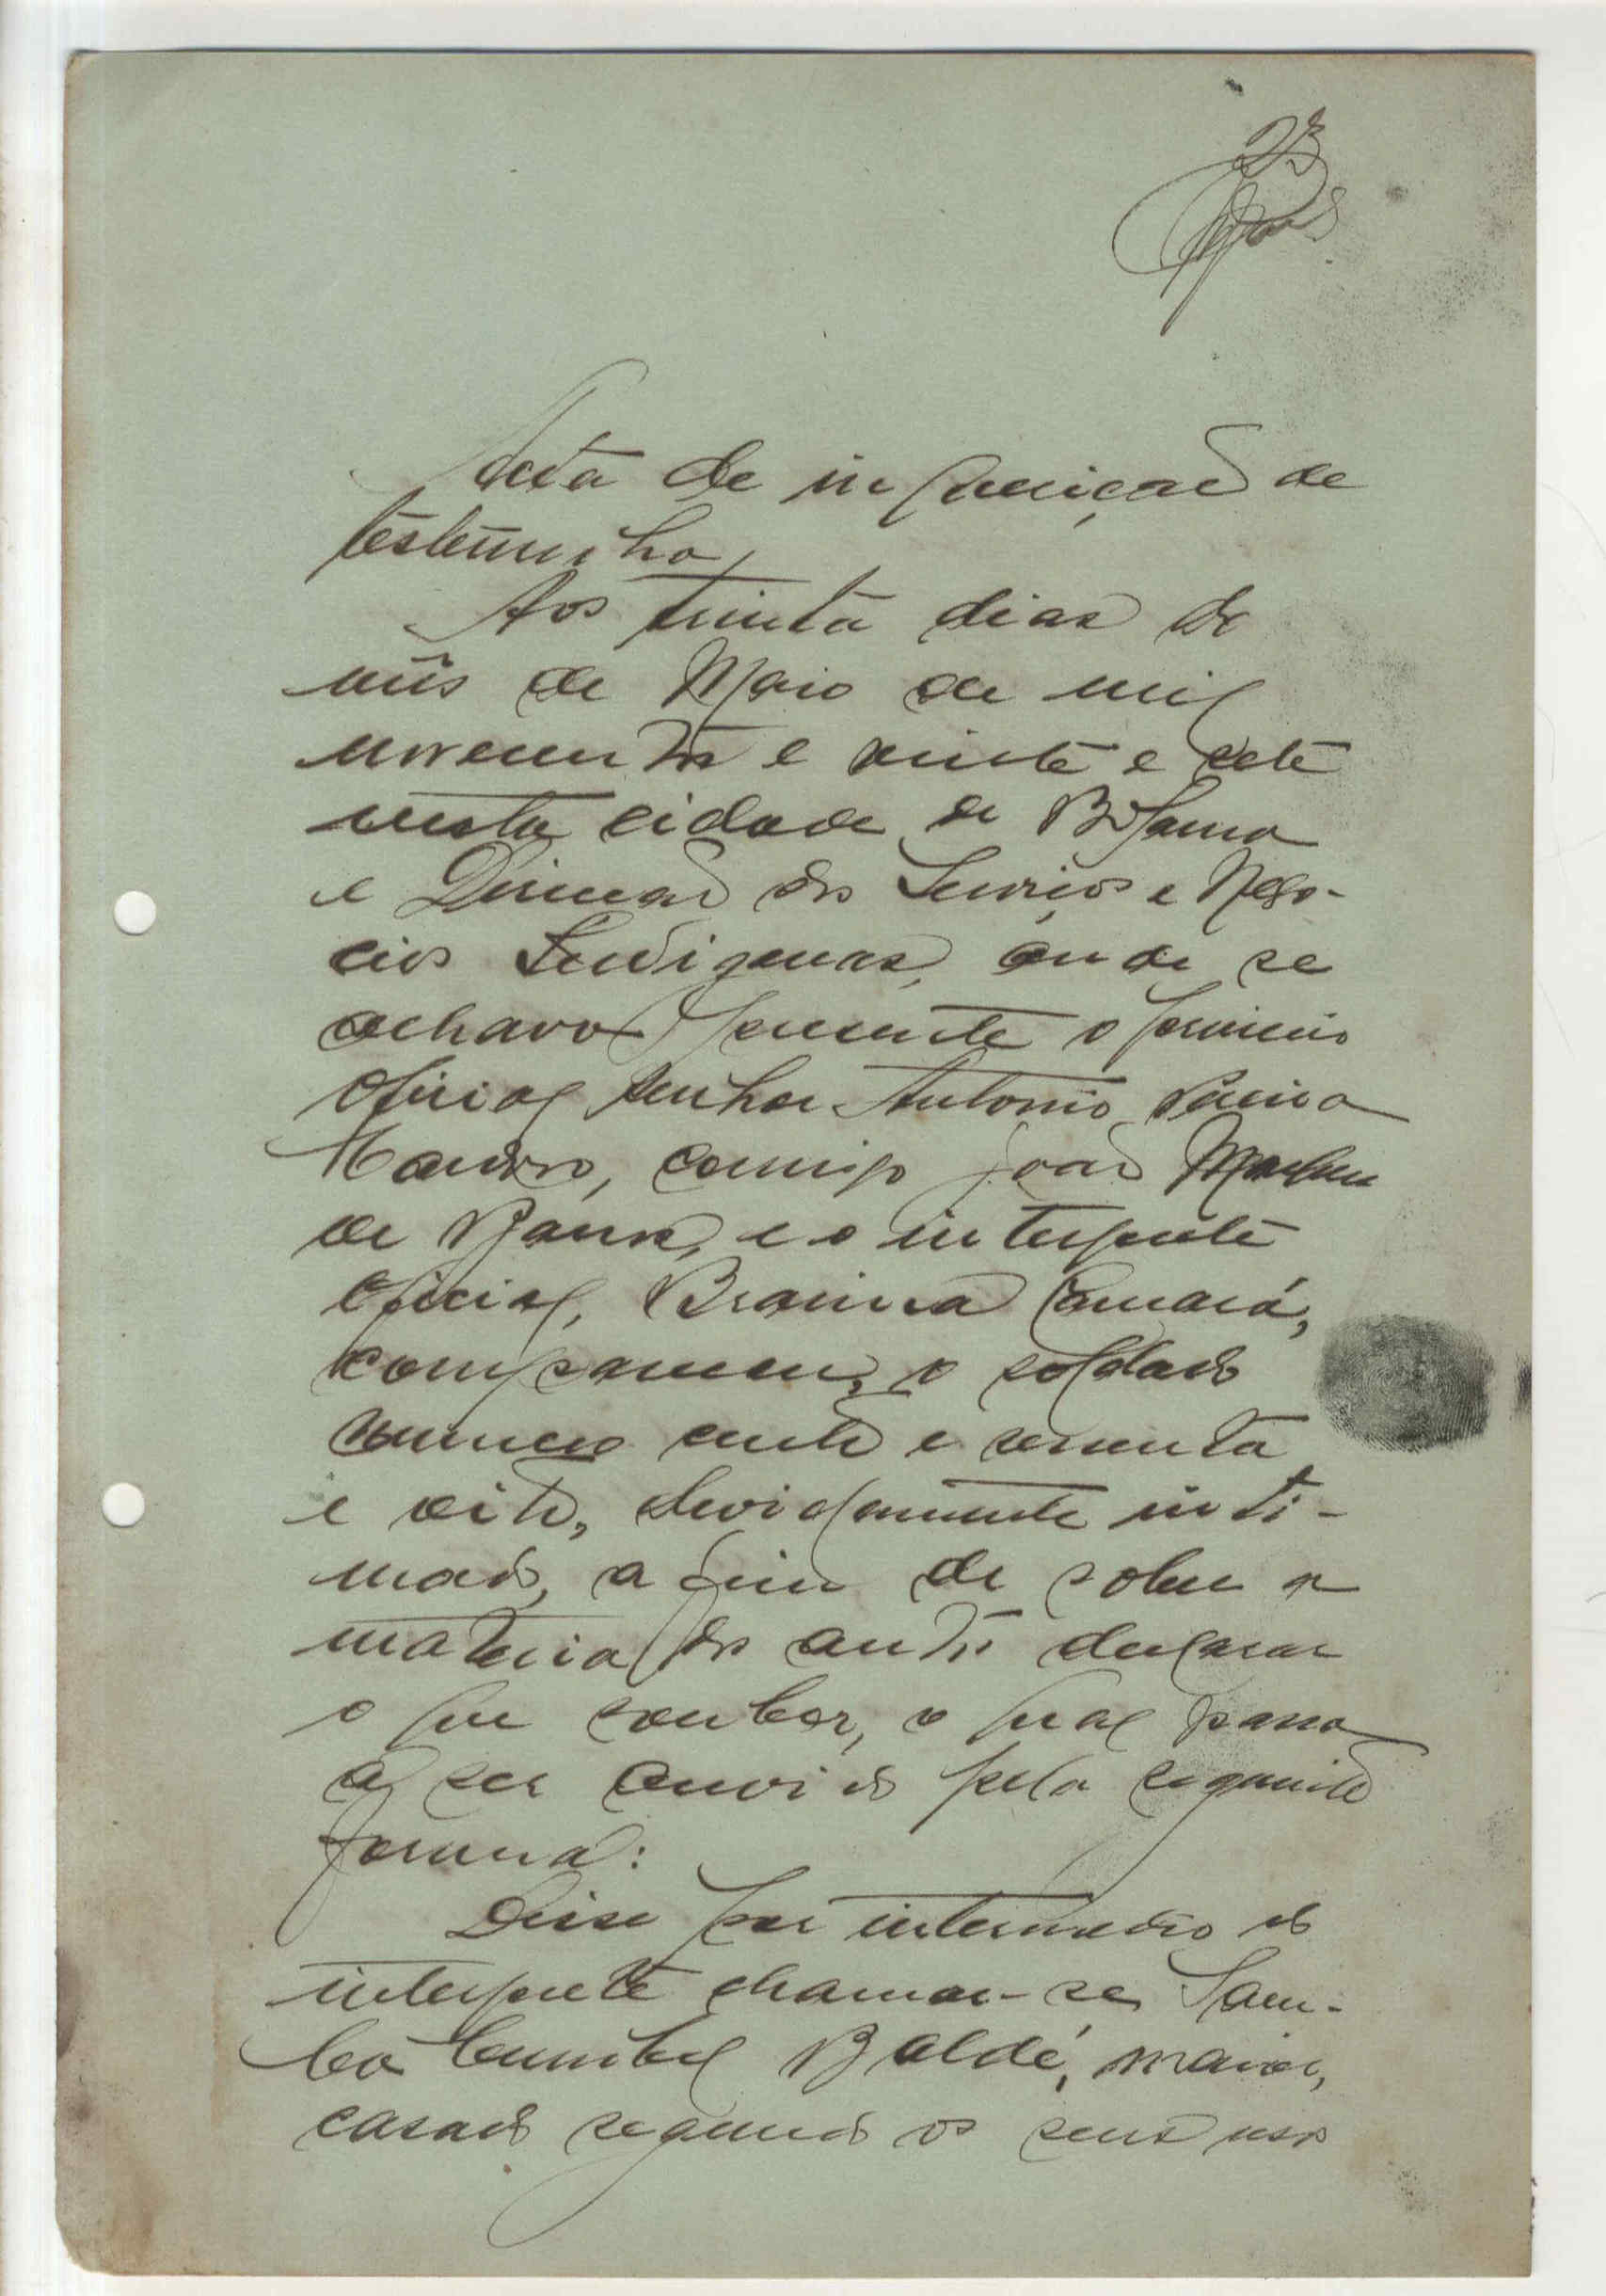 23
Acta de inquirição de
testemunha
Aos trinta dias do
mês de Maio de mil
novecentos e vinte e sete
nesta cidade de Bolama
e Direcção dos Serviços e Nego-
cios Indigenas, onde se
achava presente o primeiro
oficial senhor Antonio Pereira
Cardoso, comigo João
de Barros, e o interprete
oficial, Braima Camará,
compareceu, o soldado
numero cento e sessenta
e oito, devidamente inti-
mado, a fim de sobre a
materia dos autos declarar
o que souber, o qual passa
a ser ouvido pela seguinte
forma:
Disse por intermedio do
interprete chamar-se Sam-
ba Baldé, maior,
casado segundo os seus usos